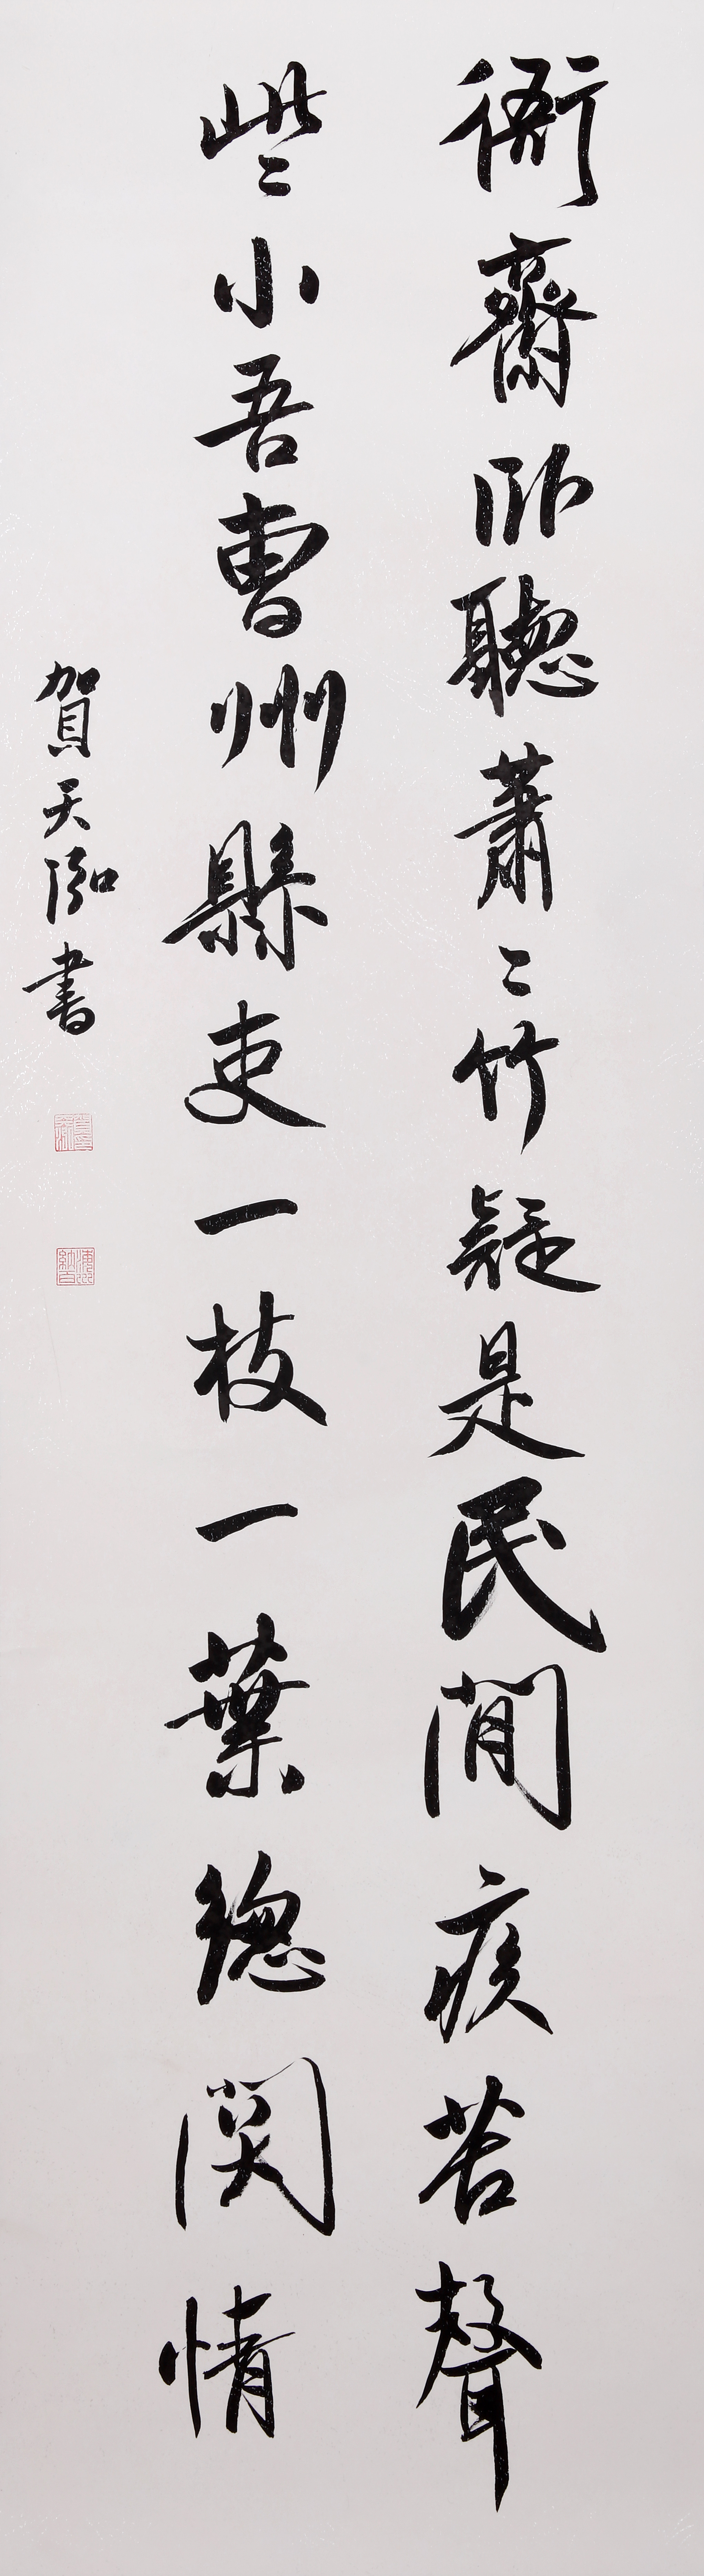 衙齋卧聽蕭〻竹疑是民間疾苦聲
些小吾曹州縣吏一枝一葉總関情
賀天泓書